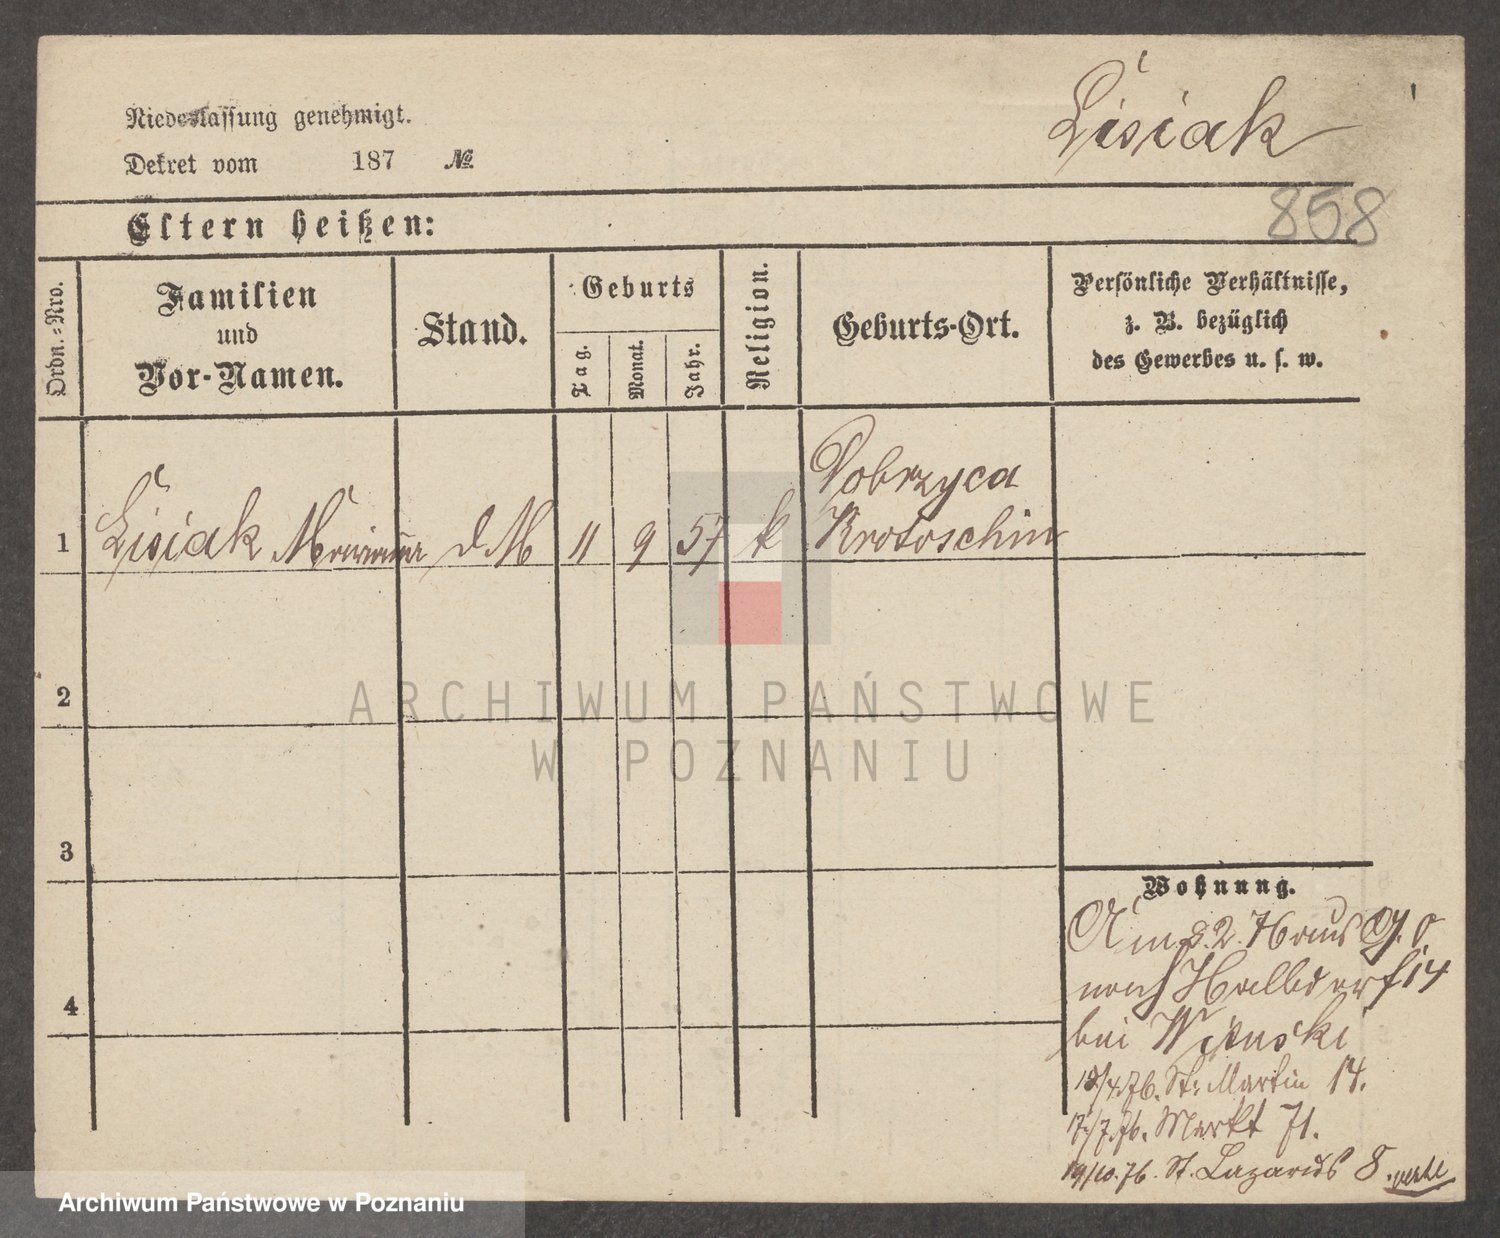 Niederlassung genehmigt.
Lisiak
Dekret vom 187 №
858
Eltern heißen:
Ordn.-Nro.
Familien
und
Vor-Namen.
Stand.
Geburts
Tag.
Monat.
Jahr.
Religion.
Geburts-Ort.
Persönliche Verhältnisse,
z. B. bezüglich
des Gewerbes u. s. w.
1 Lisiak Marianna d M 11 9 57 k Dobrzyca
Krotoschin
2
ARCHIWUM PAŃSTWOWE
W POZNANIU
3
4
Wohnung.
2. Haus
nach Halbdorf 14
bei
18/4.76. St. Martin 14.
17/7.76. Markt 71.
19/10.76. St. Lazarus 8.
Archiwum Państwowe w Poznaniu